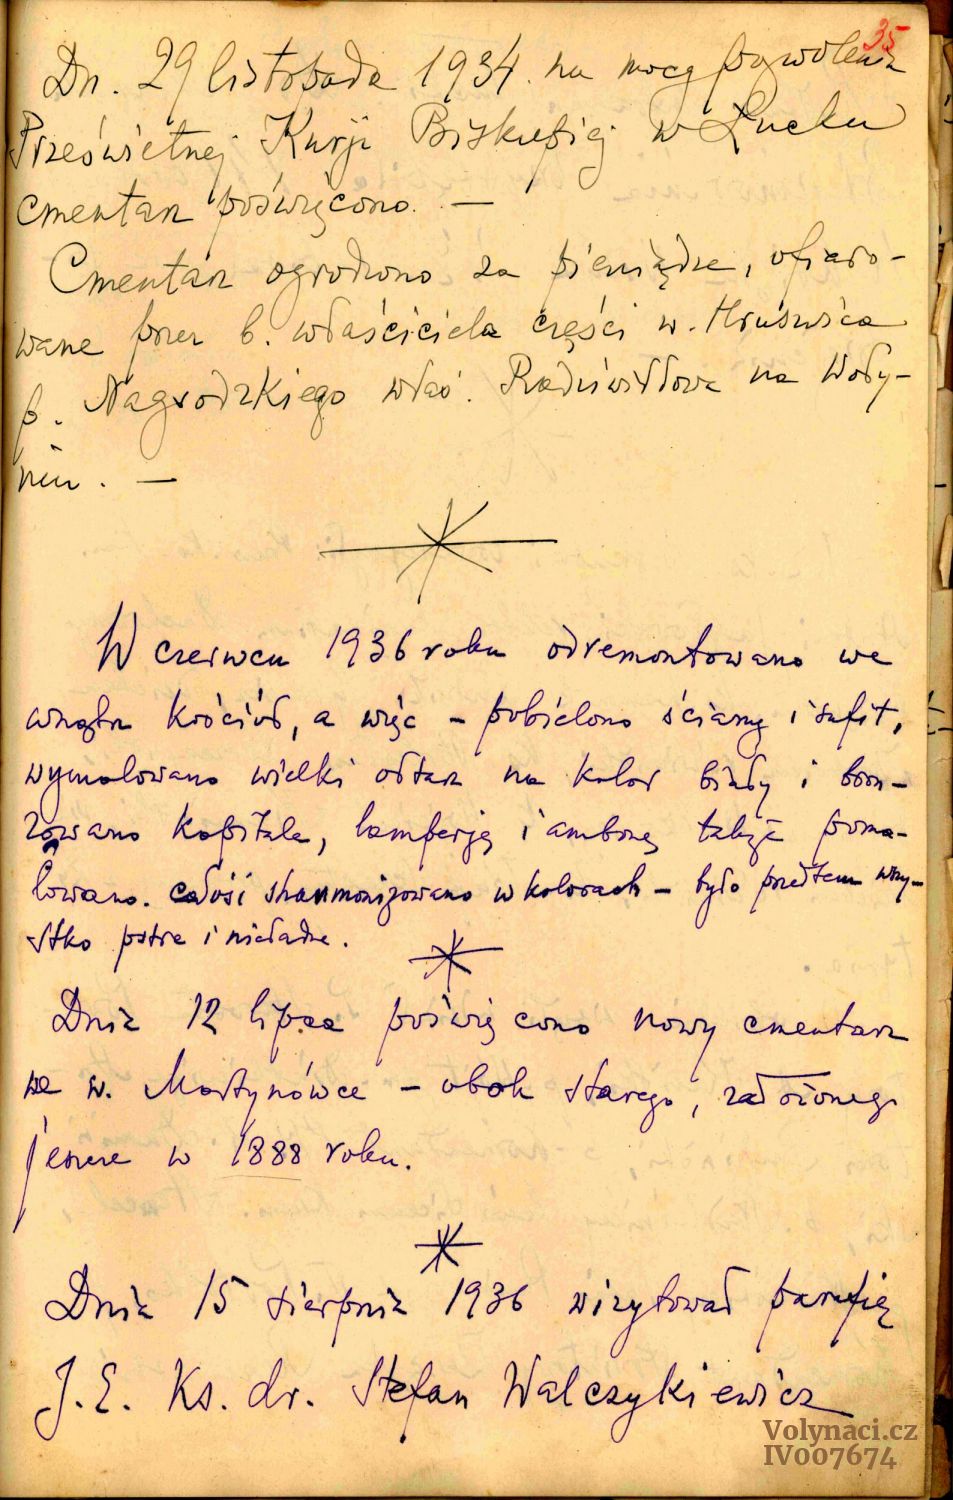 35
Dn. 29 listopada 1934. na mocy pozwolenia
Prześwietnej Kurji Biskupiej w Łucku
cmentarz poświęcono. —
Cmentarz ogrodzono za pieniądze, ofiaro-
wane przez b. właściciela części w. Hruszwica
p. Nagrodzkiego właś. Radziwiłłowa na Woły-
niu. —
W czerwcu 1936 roku odremontowano we
wnątrz kościół, a więc – pobielono ściany i sufit,
wymalowano wielki ołtarz na kolor biały i bron-
zowano kapitele, lamperję i ambonę także poma-
lowano. całość sharmonizowano w kolorach – było przedtem wszy-
stko pstre i nieładne.
Dnia 12 lipca poświęcono nowy cmentarz
we w. Martynówce – obok starego, założonego
jeszcze w 1888 roku.
Dnia 15 sierpnia 1936 wizytował parafię
J. E. Ks. dr. Stefan Walczykiewicz
Volynaci.cz
IV007674